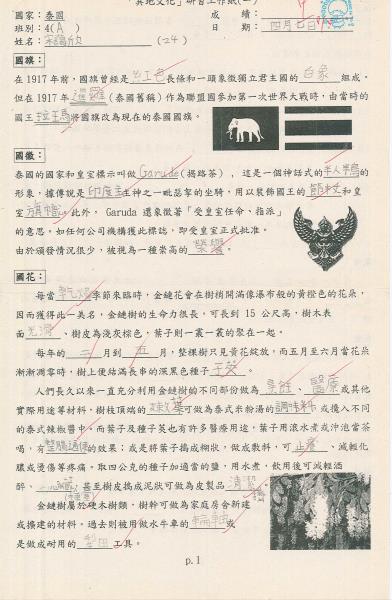 異地文化」研習工作紙(一)
國家：泰國
成績：
班別：4(A)
日期：四月七日
姓名： (24)
國旗：
在1917年前，國旗曾經是紅色長條和一頭象徵獨立君主國的白象組成。
但在1917年暹羅(泰國舊稱)作為聯盟國參加第一次世界大戰時，由當時的
國王拉瑪將國旗改為現在的泰國國旗。
國徽：
泰國的國家和皇室標示叫做Garuda(揭路荼)，這是一個神話式的半人半鳥的
形象，據傳說是印度主神之一毗瑟拏的坐騎，用以裝飾國王的節杖和皇
室旗幟。此外，Garuda 還象徵著「受皇室任命、指派」
的意思。如任何公司機構獲此標誌，即受皇室正式批准。
由於頒發情況很少，被視為一種崇高的榮譽。
國花：
每當乾燥季節來臨時，金鏈花會在樹梢開滿像瀑布般的黃橙色的花朵，
因而獲得此一美名，金鏈樹的生命力很長，可長到 15 公尺高，樹木表
面光滑、樹皮為淺灰棕色，葉子則一叢一叢的聚在一起。
每年的二月到五月，整棵樹只見黃花綻放，而五月至六月當花朵
漸漸凋零時，樹上便結滿長串的深黑色種子
人們長久以來一直充分利用金鏈樹的不同部份做為烹飪、醫療或其他
實際用途等材料，樹枝頂端的嫩葉可做為泰式米粉湯的調味料或攙入不同
的泰式辣椒醬中，而葉子及種子英也有許多醫療用途，葉子用滾水煮或沖泡當茶
喝，有整腸通便的效果；或是將葉子搗成糊狀，做成敷料，可止癢、減輕化
膿或燙傷等疼痛。取四公克的種子加適當的鹽，用水煮，飲用後可減輕酒
醉。甚至樹皮搗成泥狀可做為皮製品清潔
金鏈樹屬於硬木樹類，樹幹可做為家庭房舍新建
或擴建的材料。過去則被用做水牛車的輪軸或
是做成耐用的犁田工具。
p.1